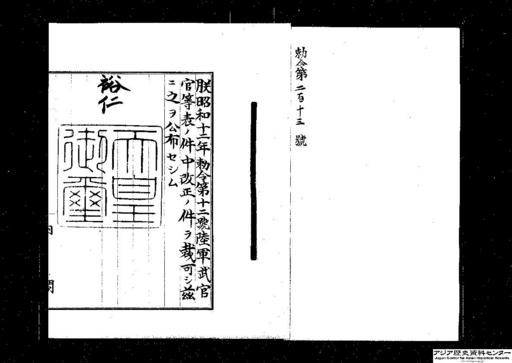 勅令第二百十三號
朕昭和十二年勅令第十二號陸軍武官
官等表ノ件中改正ノ件ヲ裁可シ茲
ニ之ヲ公布セシム
裕仁
天皇
御璽
内閣
アジア歴史資料センター
Japan Center for Asian Historical Records